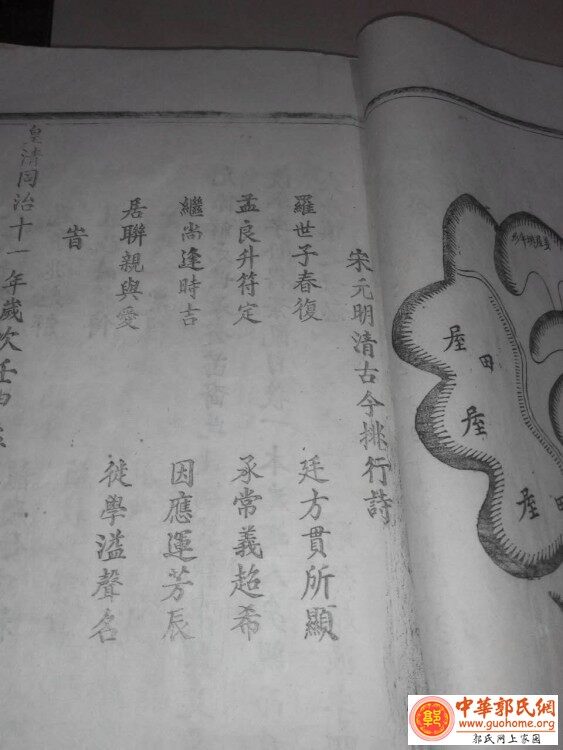 屋
田
屋
屋
田
宋元明清古今排行詩
羅世子春復 廷方貫所顯
孟良升符定 承常義超希
繼尚逢時吉 因應運芳辰
居聯親與愛 從學溢聲名
旹
皇清同治十一年歲次壬申
中華郭氏網
www.guohome.org
郭氏网上家园